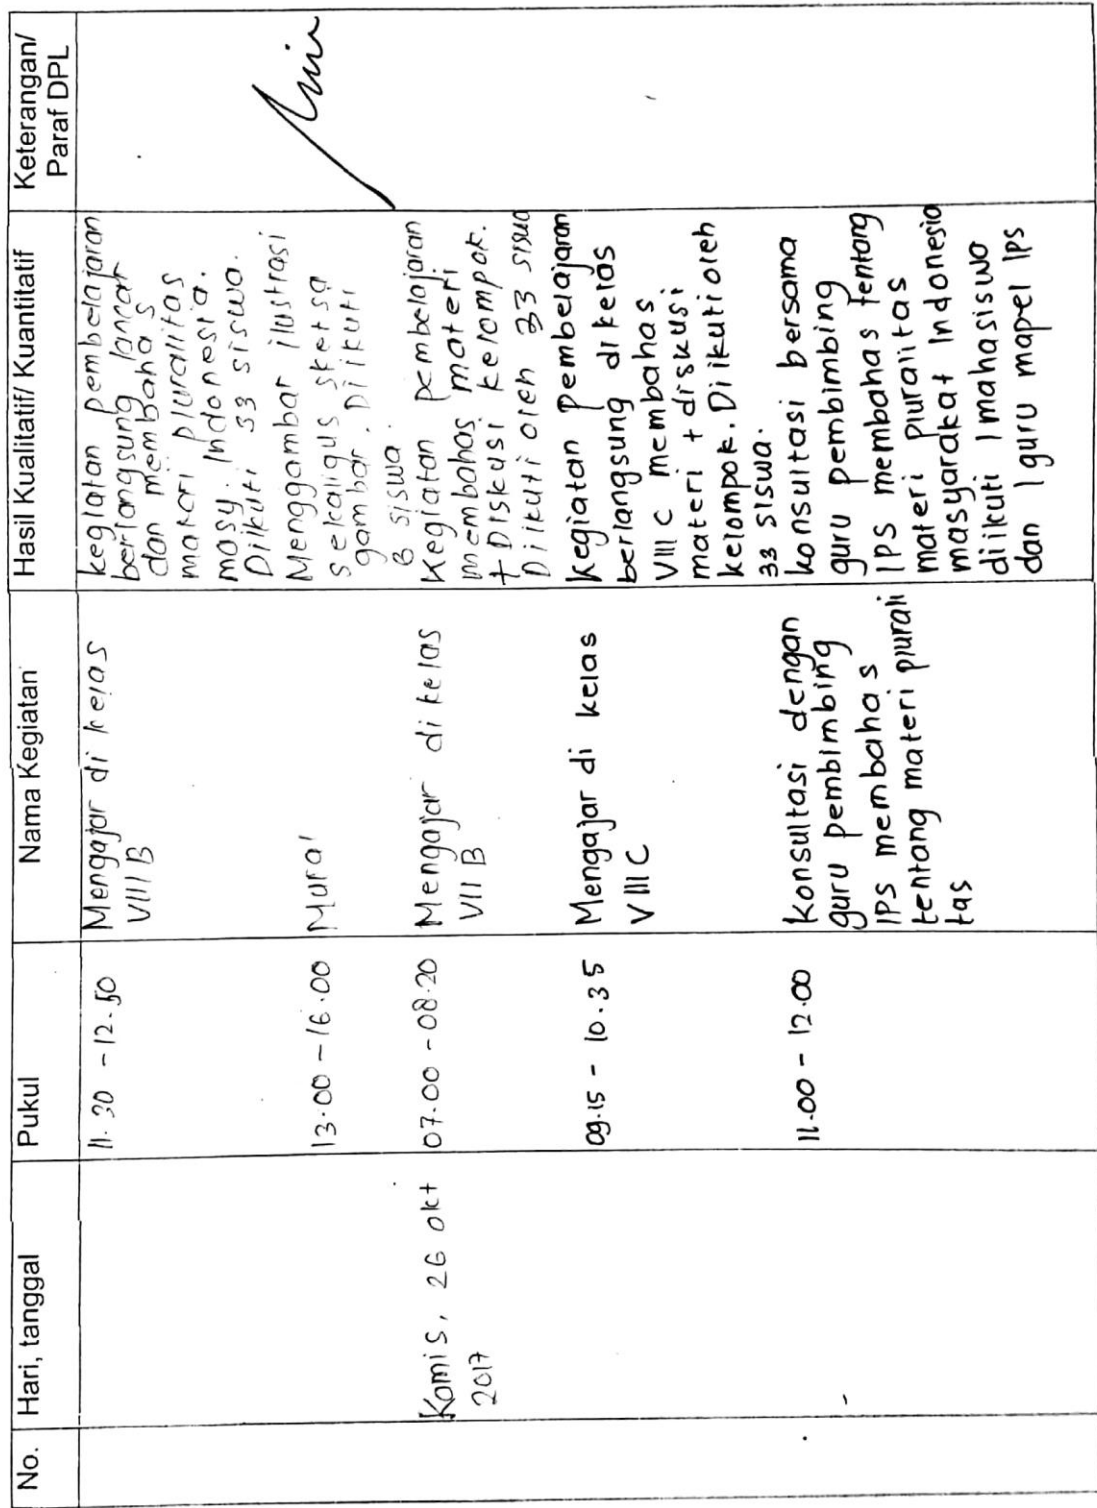 No.
Hari, tanggal
Pukul
Nama Kegiatan
Hasil Kualitatif/ Kuantitatif
Keterangan/
Paraf DPL
11.30 - 12.50
Mengajar di kelas
VIII B
kegiatan pembelajaran
berlangsung lancar
dan membahas
materi pluralitas
masy. Indonesia.
Diikuti 33 siswa.
13.00 - 16.00
Mural
Menggambar ilustrasi
sekaligus sketsa
gambar. Diikuti
8 siswa.
Kamis, 26 Okt
2017
07.00 - 08.20
Mengajar di kelas
VII B
Kegiatan pembelajaran
membahas materi
+ Diskusi kelompok.
Diikuti oleh 33 siswa
09.15 - 10.35
Mengajar di kelas
VIII C
Kegiatan pembelajaran
berlangsung di kelas
VIII C membahas
materi + diskusi
kelompok. Diikuti oleh
33 siswa.
11.00 - 12.00
Konsultasi dengan
guru pembimbing
IPS membahas
tentang materi plurali
tas
konsultasi bersama
guru pembimbing
IPS membahas tentang
materi pluralitas
masyarakat Indonesia
diikuti 1 mahasiswa
dan 1 guru mapel IPS